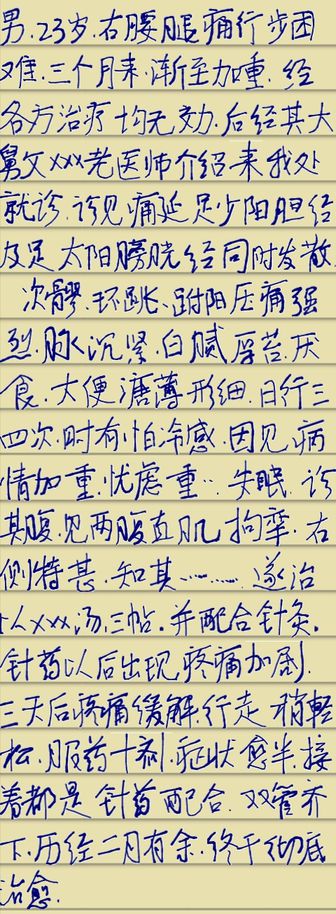 男.23岁.右腰腿痛行步困
难.三个月来.渐至加重.经
各方治疗均无效力.后经其大
舅父xxx老医师介绍来我处
就诊.诊见痛延足少阳胆经
及足太阳膀胱经同时发散.
次髎.环跳、跗阳压痛强
烈.脉沉紧.白腻厚苔.厌
食.大便溏薄形细.日行三
四次.时有怕冷感.因见病
情加重.忧虑重重.失眠.诊
其腹.见两腹直肌拘挛.右
侧特甚.知其……遂治
以xxx汤.三帖.并配合针灸.
针药以后出现疼痛加剧.
三天后疼痛缓解.行走稍轻
松.服药十剂.症状愈半.接
着都是针药配合.双管齐
下.历经二月有余.终于彻底
治愈.